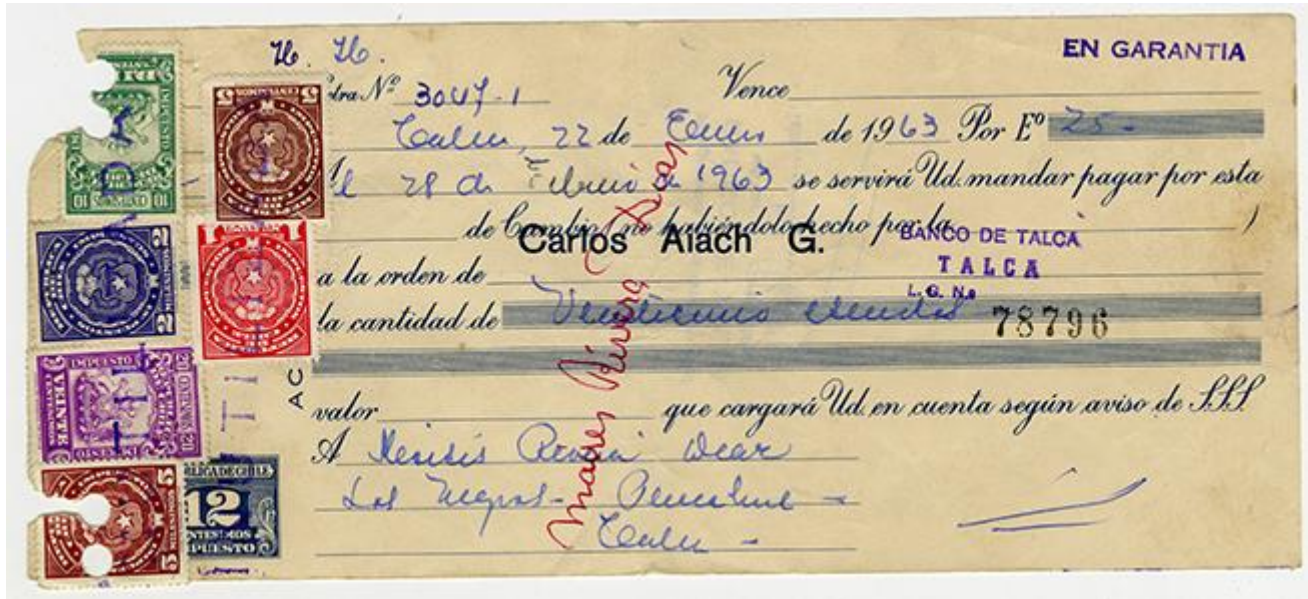 EN GARANTIA
Letra Nº 3047-1 Vence
Talca, 22 de Enero de 1963 Por Eº 25.-
Al 28 de Febrero de 1963 se servirá Ud. mandar pagar por esta
de Cambio (no habiéndolo hecho por la )
Carlos Alach G.
BANCO DE TALCA
TALCA
L. G. N.o
78796
a la orden de
la cantidad de Veinticinco escudos
valor que cargará Ud. en cuenta según aviso de S.S.S.
A Moisés Rivera Dear
Los Negros - Pencahue -
Talca -
Moises Rivera
AC
IMPUESTO
10 CENTAVOS 10
IMPUESTO
20 CENTAVOS 20
VEINTE
REPUBLICA DE CHILE
12
CENTESIMOS
IMPUESTO